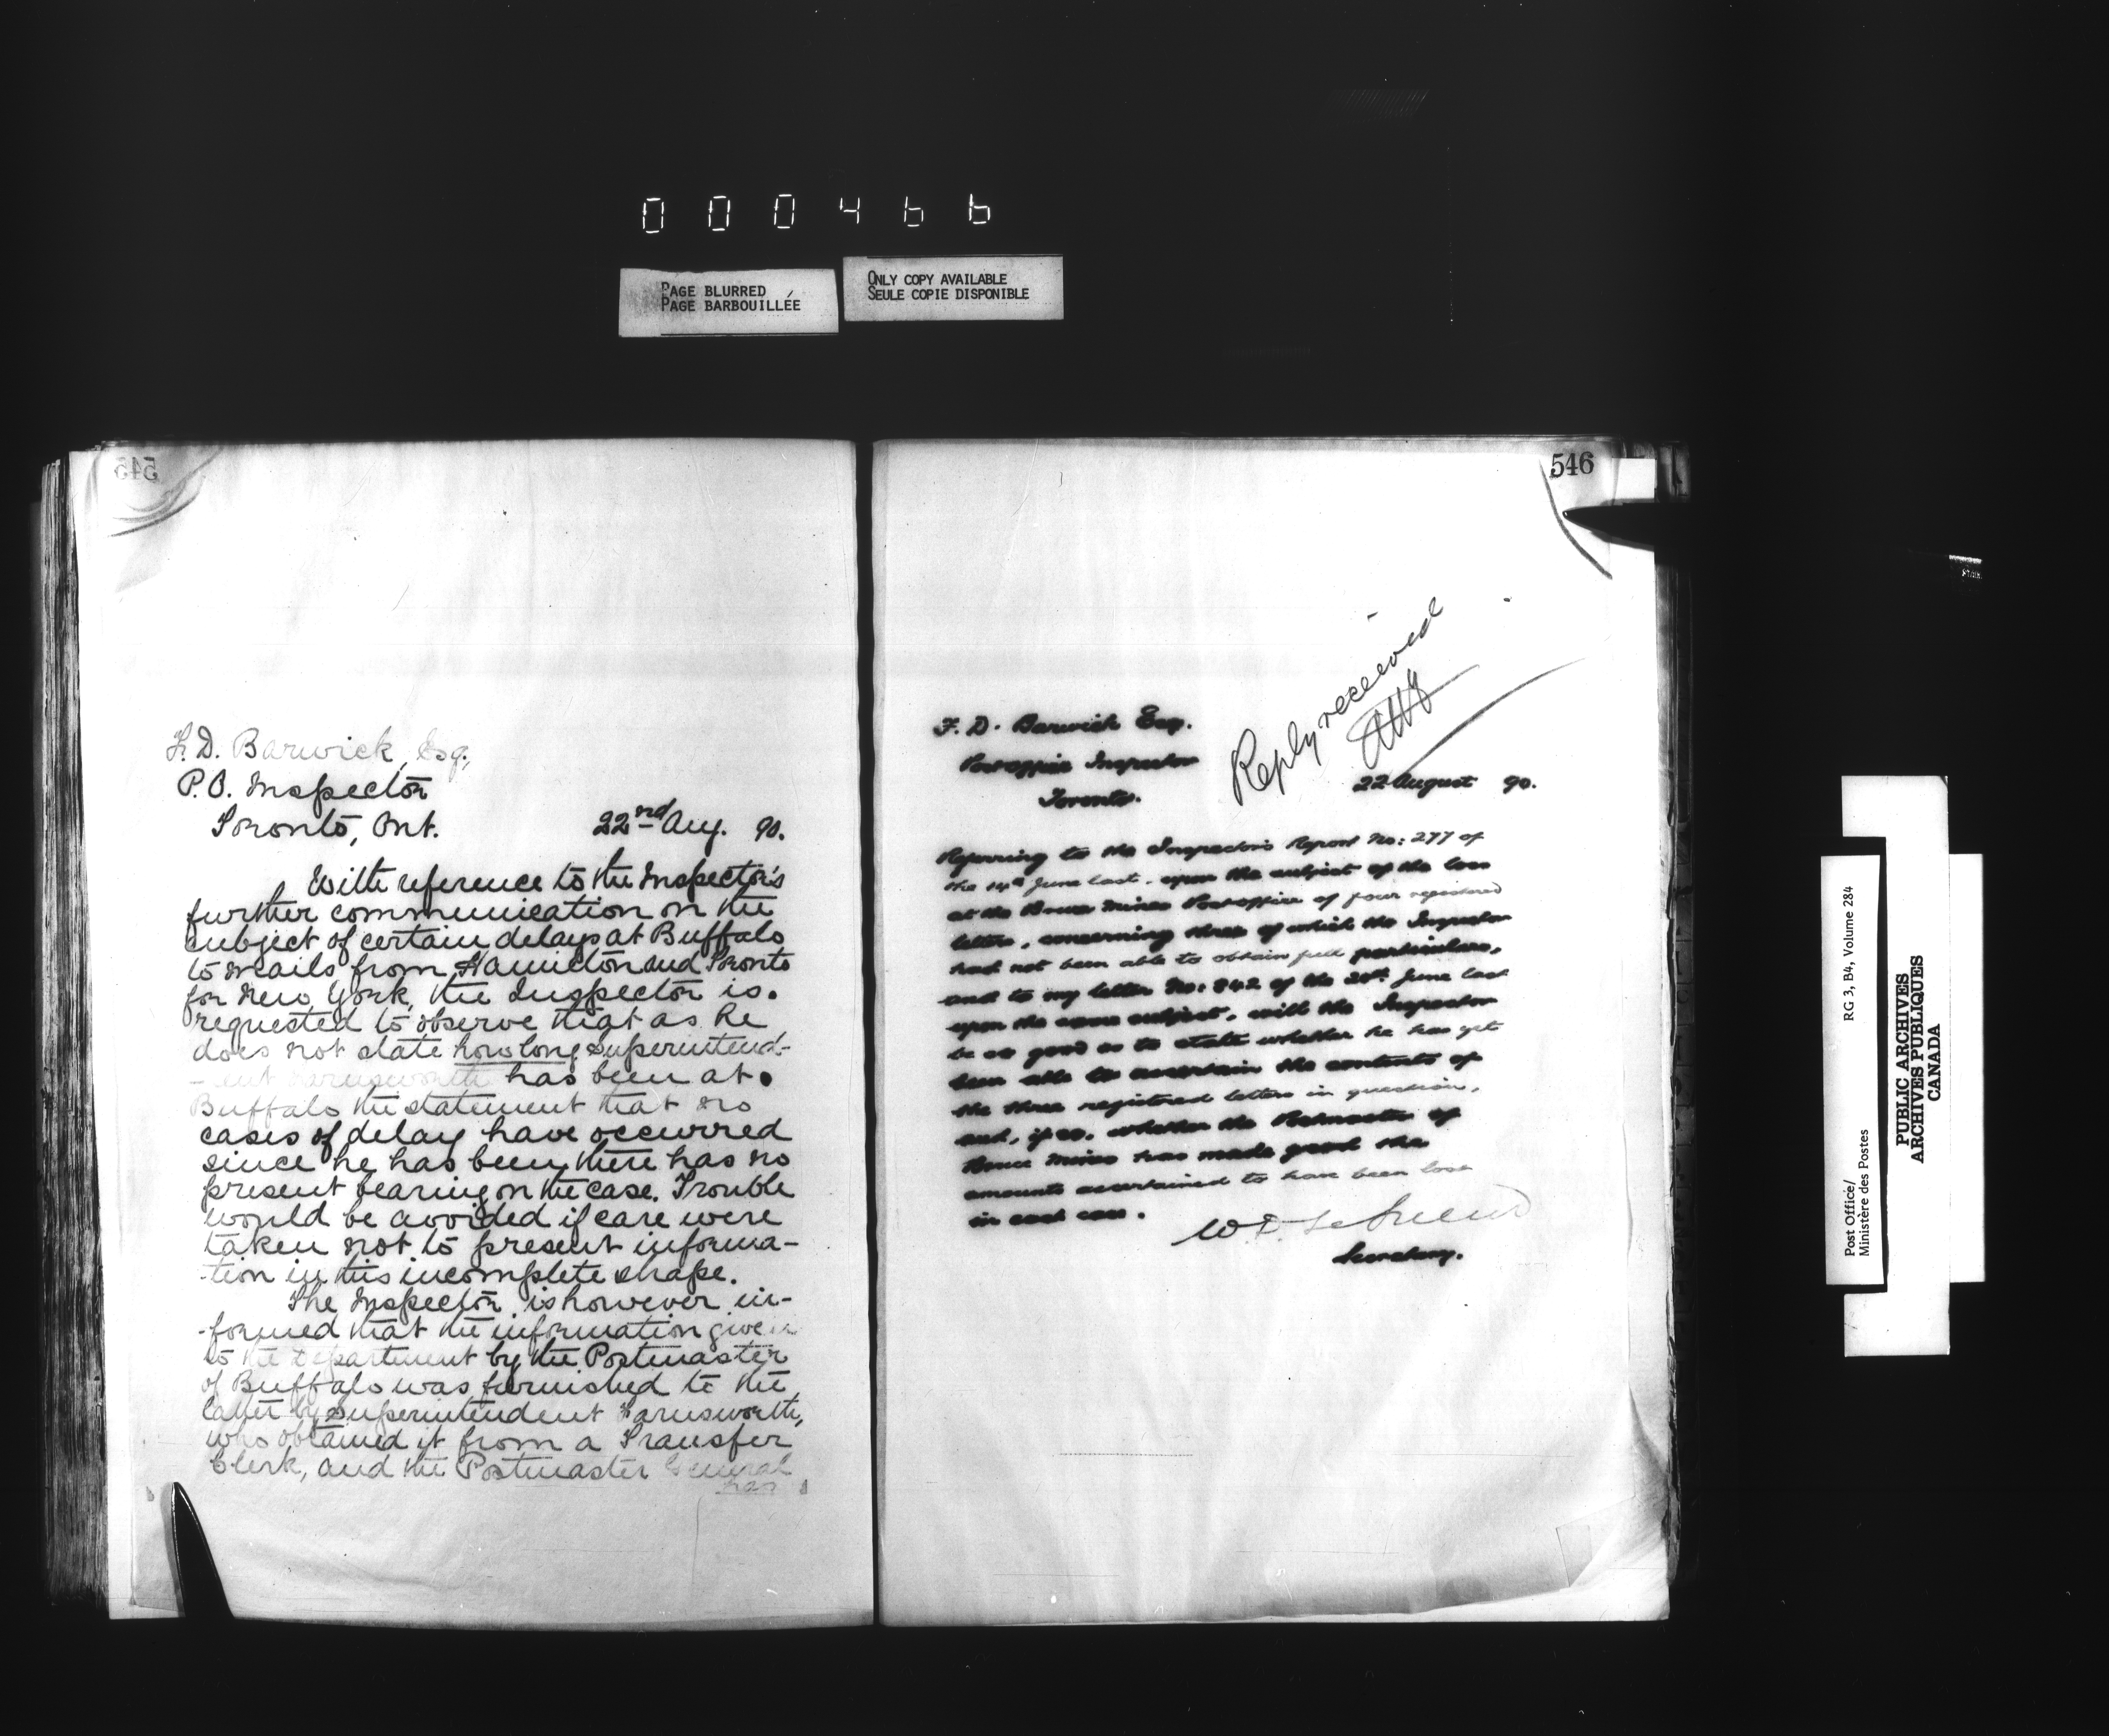 000466
PAGE BLURRED
PAGE BARBOUILLÉE
ONLY COPY AVAILABLE
SEULE COPIE DISPONIBLE
545
F. D. Barwick, Esq,
P. O. Inspector
Toronto, Ont. 22nd Aug. 90.
With reference to the Inspector's
further communication on the
subject of certain delays at Buffalo
to mails from Hamilton and Toronto
for New York, the Inspector is
requested to observe that as he
does not state how long Superintend-
-ent Farnsworth has been at
Buffalo the statement that no
cases of delay have occurred
since he has been there has no
present bearing on the case. Trouble
would be avoided if care were
taken not to present informa-
-tion in this incomplete shape.
The Inspector is however in-
-formed that the information given
to the Department by the Postmaster
of Buffalo was furnished to the
latter by Superintendent Farnsworth,
who obtained it from a Transfer
Clerk, and the Postmaster General
has
546
Reply received
F. D. Barwick Esq.
Post office Inspector
Toronto.
22 August 90.
Referring to the Inspector's Report No: 277 of
the 14th June last, upon the subject of the loss
at the Bruce Mines Post office of four registered
letters, concerning three of which the Inspector
had not been able to obtain full particulars,
and to my letter No: 842 of the June last
upon the same subject, will the Inspector
be so good as to state whether he has yet
been able to ascertain the contents of
the three registered letters in question,
and, if so, whether the Postmaster of
Bruce Mines has made good the
amounts ascertained to have been lost
in each case.
W. D. LeSueur
Secretary.
Post Office/
Ministère des Postes
RG 3, B4, Volume 284
PUBLIC ARCHIVES
ARCHIVES PUBLIQUES
CANADA